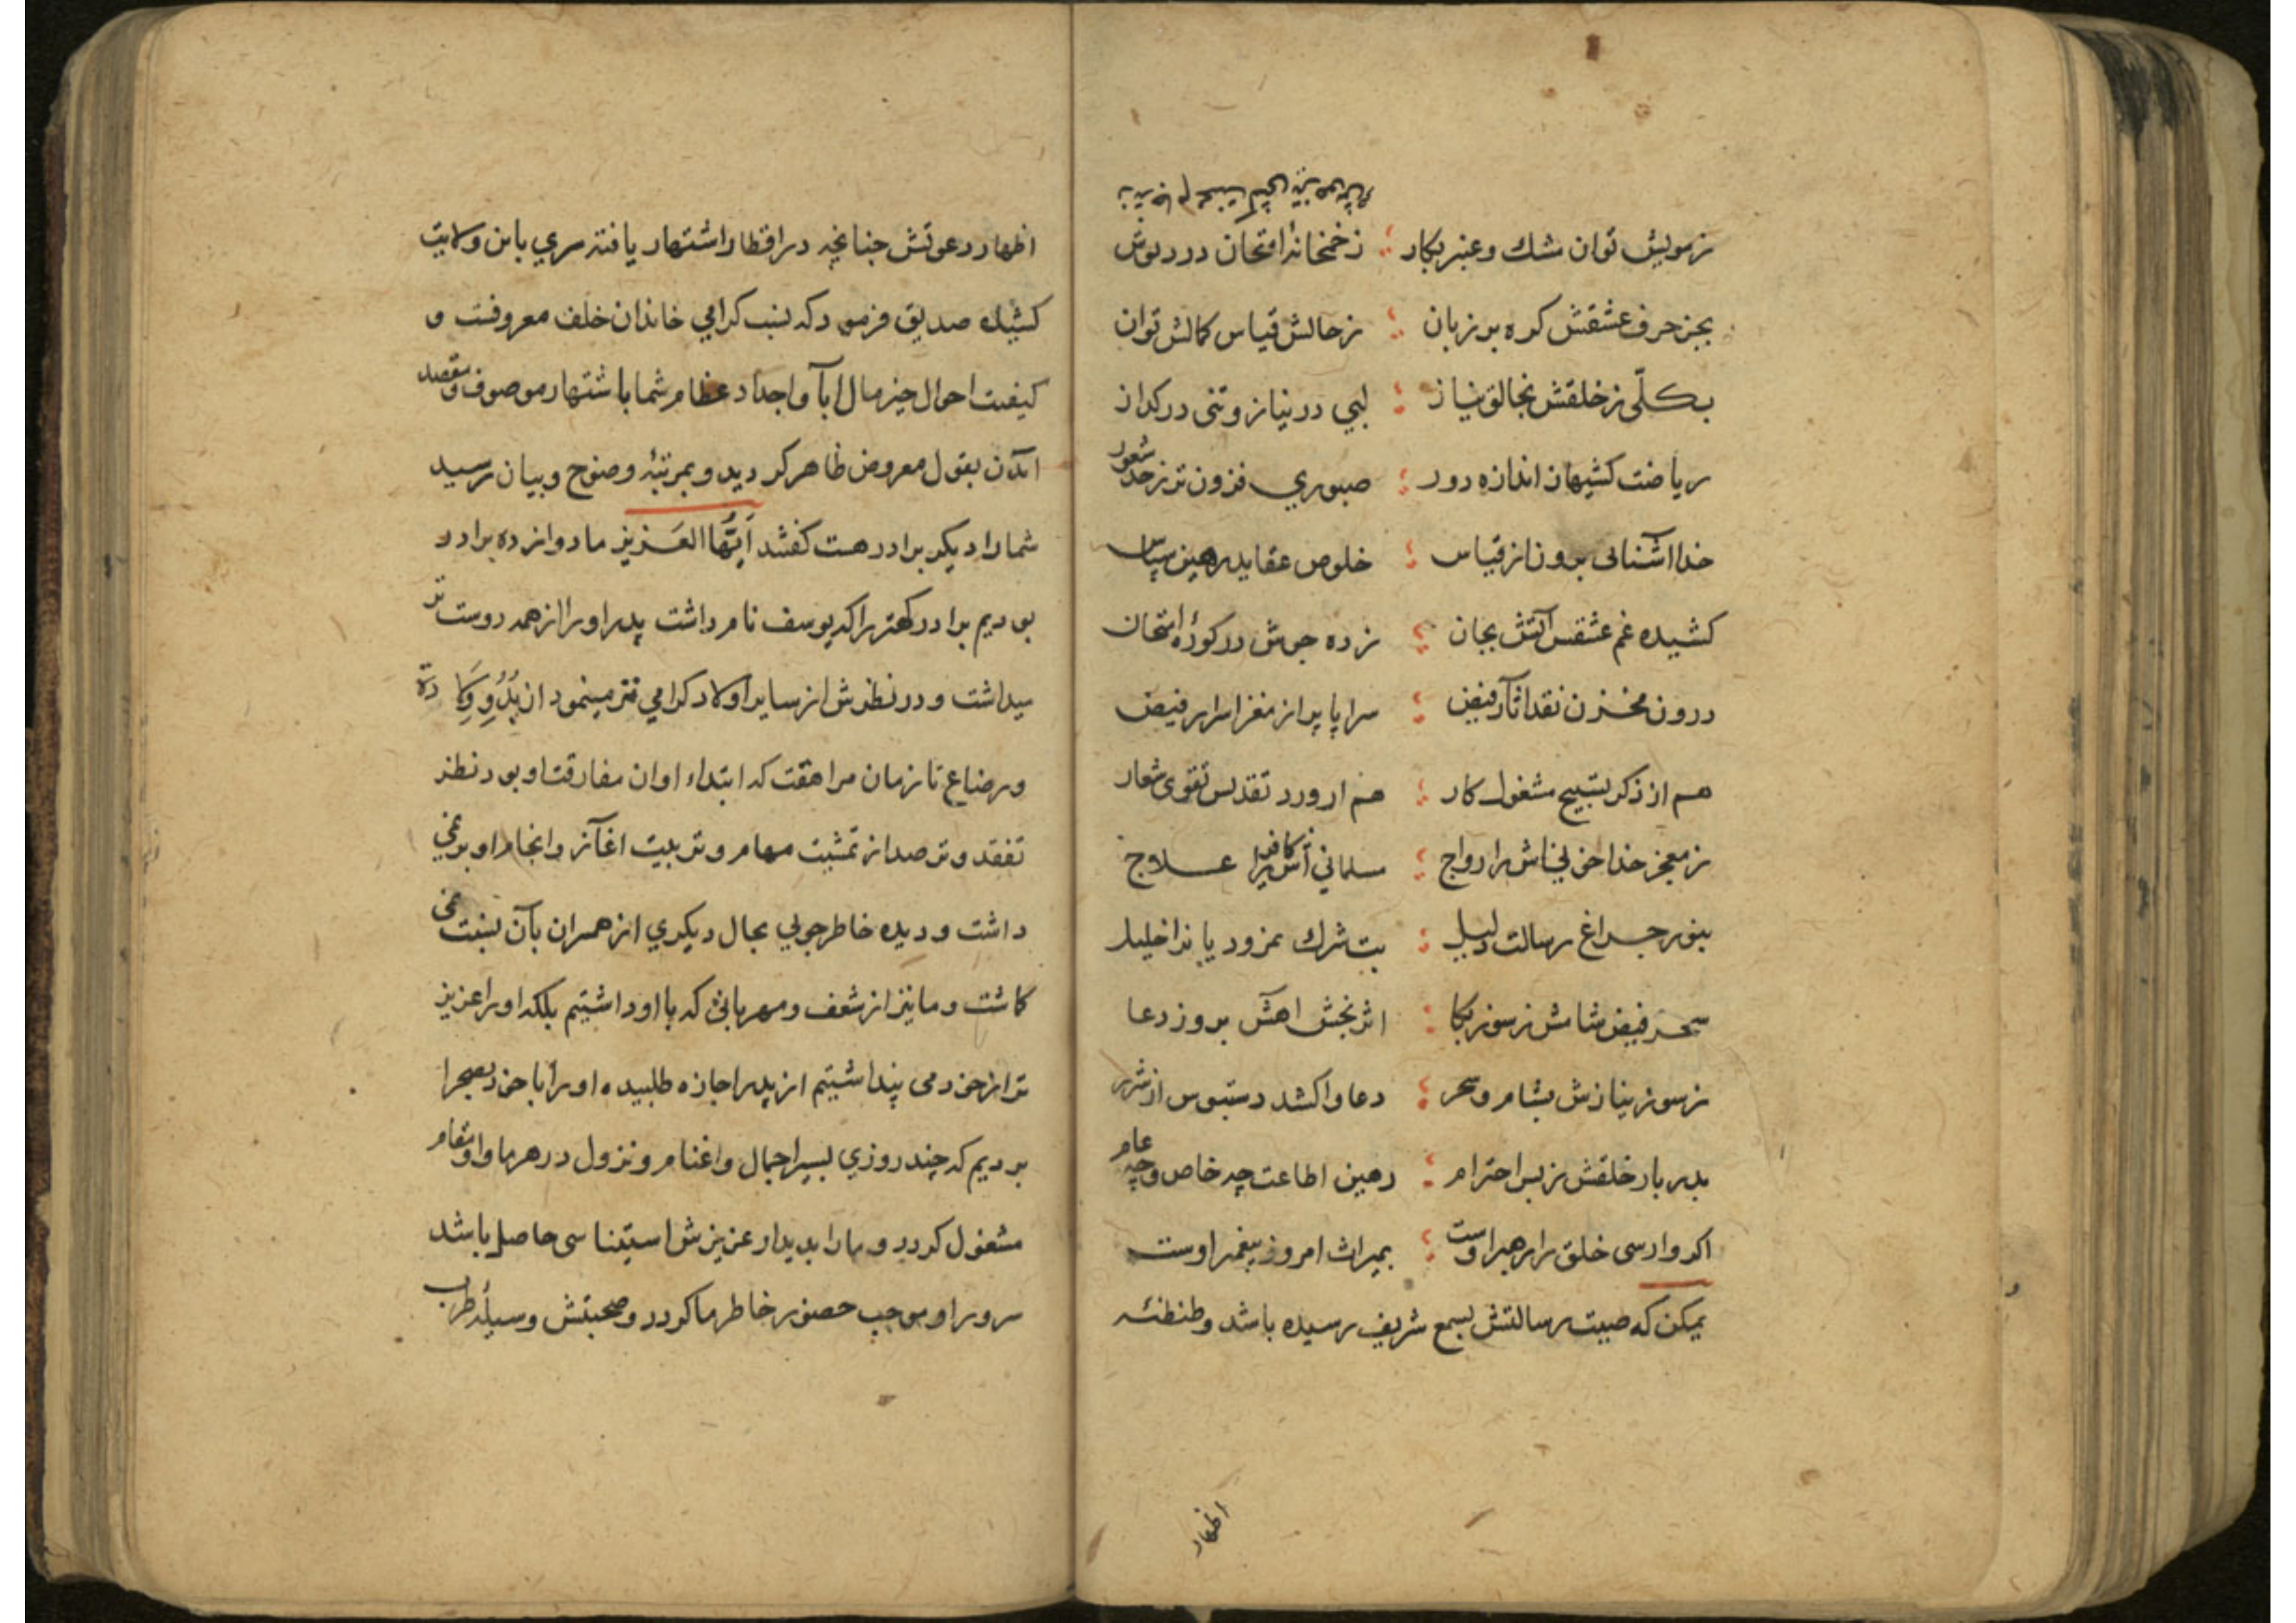 ز مویش توان مشك و عنبر بکار ؛ ز خمخانهٔ امتحان درد نوش
بجز حرف عشقش کره بر زبان ؛ ز حالش قیاس کمالش توان
بکلّی ز خلقش بخالق نیاز ؛ لبی در نیاز و تنی در کداز
ریاضت کشیهان اندازه دور ؛ صبوری فزون تر ز حد شعور
خدا آشنائی برون از قیاس ؛ خلوص عقاید رهین سپاس
کشیده غم عشقس آتش بجان ؛ زده جوش در کورهٔ امتحان
درون مخزن نقد آثار فیض ؛ سراپا پر از مغز اسرار فیض
هم از ذکر تسبیح مشغول کار ؛ هم از ورد تقدیس تقوی شعار
ز معجز خدا خوانیاش را رواج ؛ مسلمانی آش کافر را علاج
بنور چراغ رسالت دلیل ؛ بت شرك نمرود یا ندا خلیل
سحر فیض شامش ز سوز بکا ؛ اثر بخش آهش بروز دعا
ز سوز نیازش بشام و سحر ؛ دعا واکشد دستبوس از شرر
بدربار خلقش ز بس احترام ؛ رهین اطاعت چه خاص و چه عام
اکر وارسی خلق را رهبر اوست ؛ بمیراث امروز پیغمبر اوست
یمکن که صیت رسالتش بسمع شریف رسیده باشد و طنطنهٔ
اظهار
اظهار دعوتش چنانچه در اقطار اشتهار یافته سری باین ولایت
کشیده صدیق فرمود که نسب کرامی خاندان خلف معروفست و
کیفیت احوال خیر مال آبا و اجداد عظام شما باشتهار موصوف و مقصد
الآن بقول معروض ظاهر کردید و بمرتبهٔ وضوح و بیان رسید
شما را دیکر برادر هست کفتند اَیُّهَا العَزیز ما دوازده برادر
بودیم برادر کهتر را که یوسف نام داشت پدر او را از همه دوست تر
میداشت و در نظرش از سایر اولاد کرامی تر مینمود از بدو ولادة
و رضاع تا زمان مراهقت که ابتداء اوان مفارقت او بود نظر
تفقد و ترصد از تمشیت مهام و تربیت آغاز و انجام او بر نمی
داشت و دیده خاطرجوئی بحال دیکری از همسران بآن نسبت نمی
کاشت و ما نیز از شعف و مهربانئ که با او داشتیم بلکه او را عزیز
تر از خود می پنداشتیم از پدر اجازه طلبیده او را با خود بصحرا
بردیم که چند روزی بسیر اجمال و اغنام و نزول در هر ماوا و مقام
مشغول کردد و ما را بدیدار عزیزش استیناسی حاصل باشد
سرور او موجب حضور خاطر ما کردد و صحبتش وسیلهٔ طرب